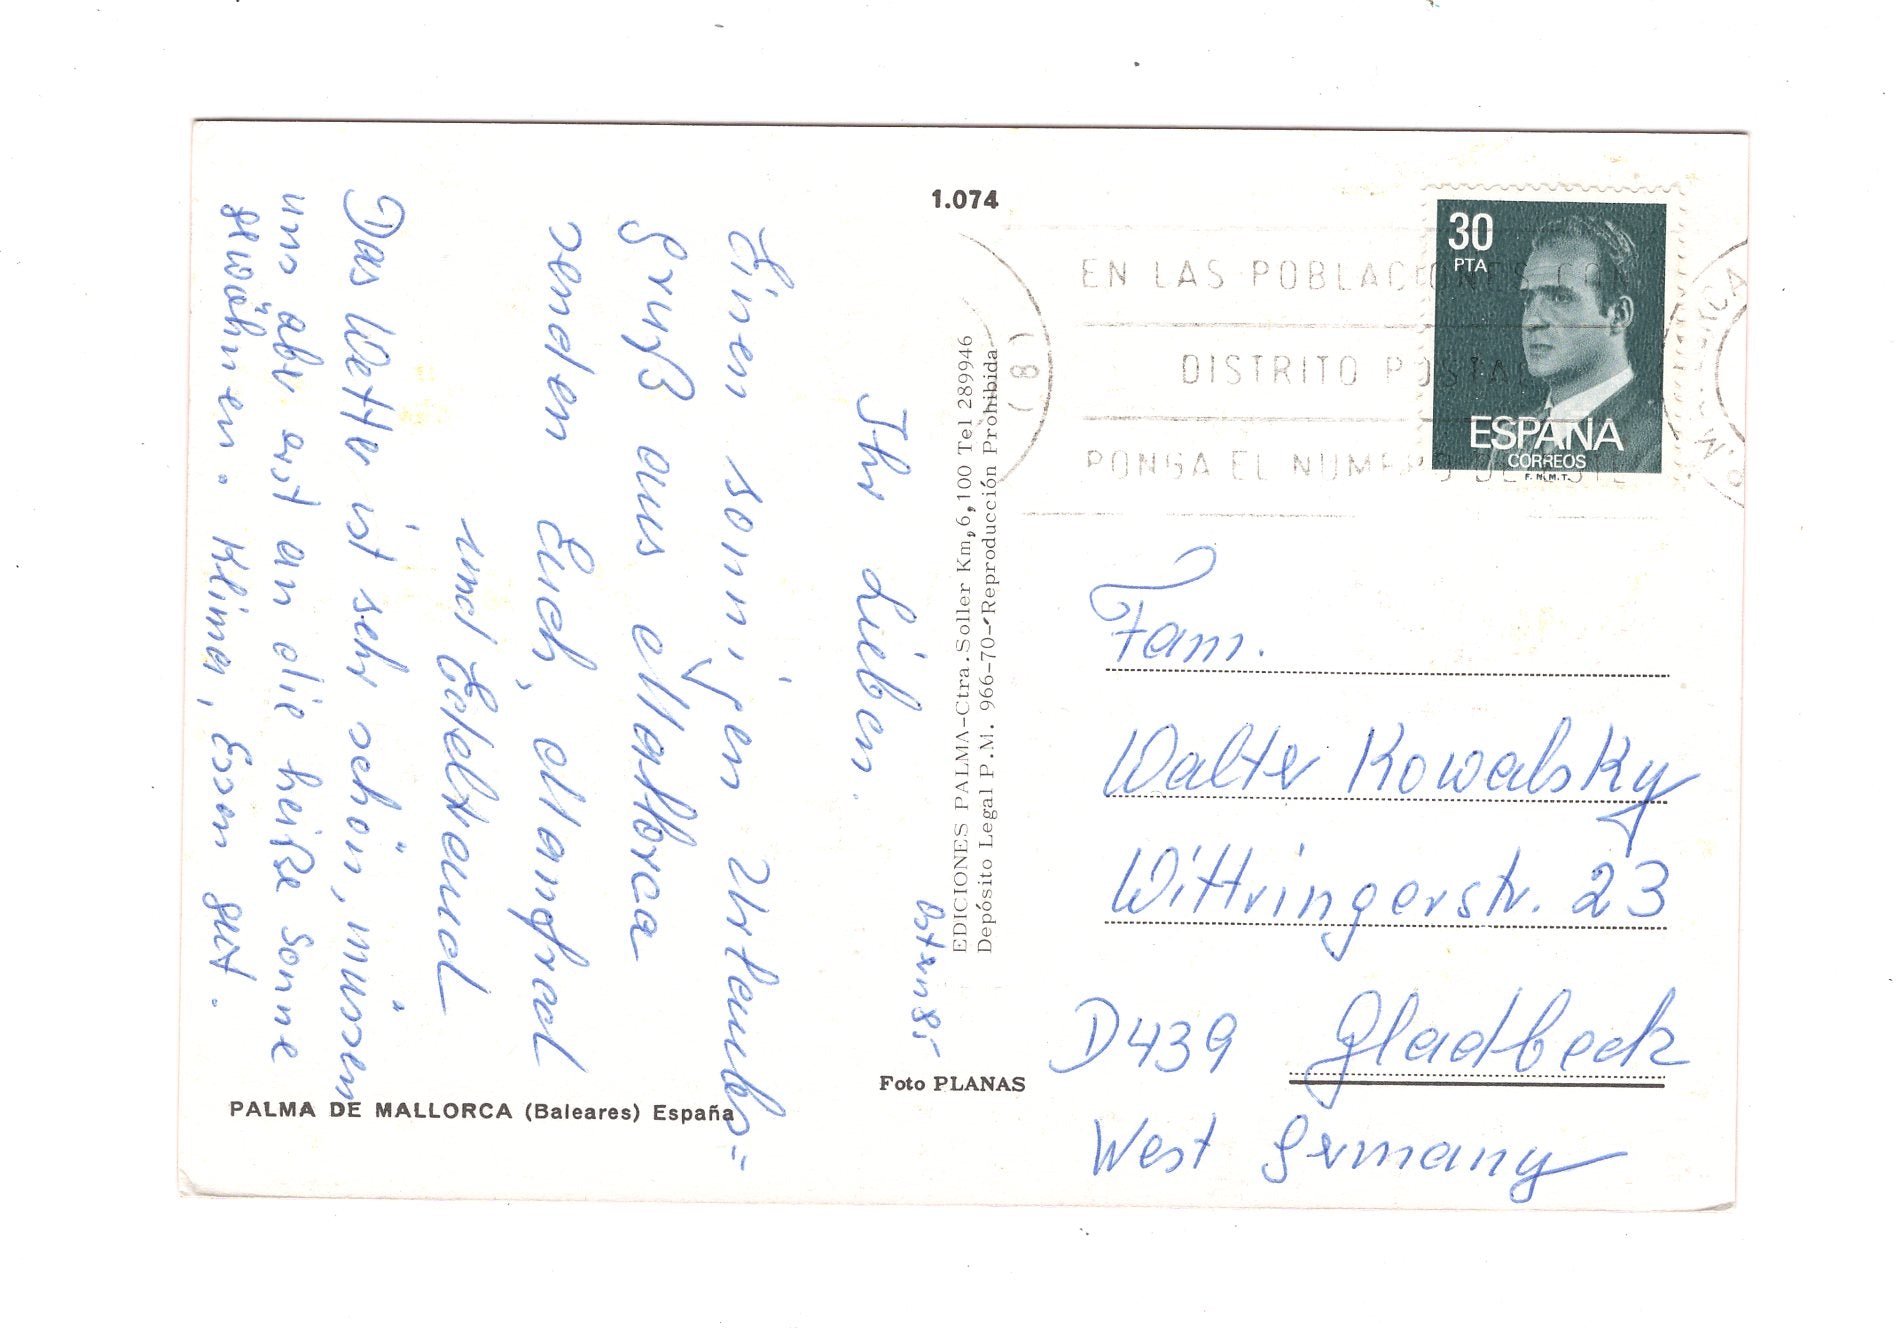 1.074
Ostern 81
Ihr Lieben.
Einen sonnigen Urlaubs=
gruß aus Mallorca
senden Euch, Manfred
und Edeltraud
Das Wetter ist sehr schön, müssen
uns aber erst an die heiße Sonne
gewöhnen. Klima, Essen gut.
PALMA DE MALLORCA (Baleares) España
Foto PLANAS
EDICIONES PALMA-Ctra. Soller Km, 6, 100 Tel 289946
Depósito Legal P.M. 966-70-Reproducción Prohibida
(8)
EN LAS POBLACIONES CON
DISTRITO POSTAL
PONGA EL NUMERO DE ESTE
30
PTA
ESPAÑA
CORREOS
F.N.M.T.
Fam.
Walter Kowalsky
Wittringerstr. 23
D439 Gladbeck
West Germany